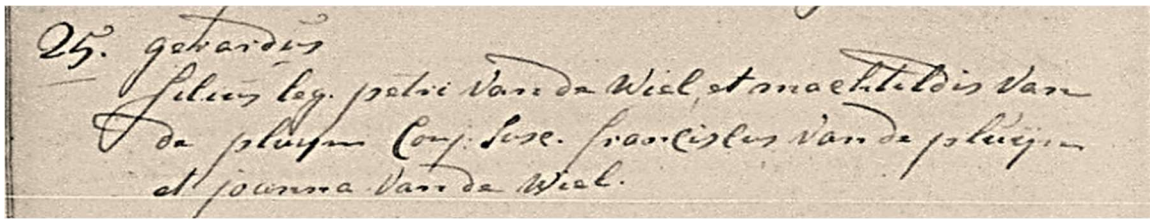 25. gerardus
filius leg. petri Van de Wiel et machtildis Van
de pluym Conj. Susc. franciscus Van de pluijm
et joanna Van de Wiel.